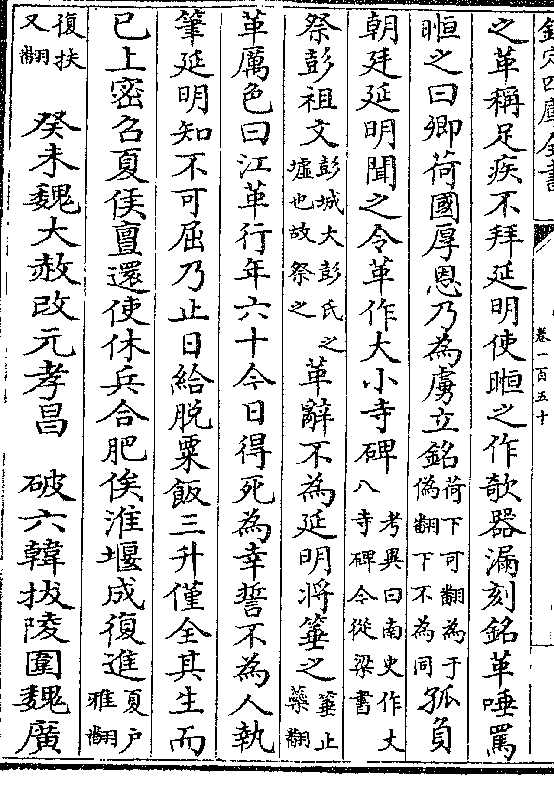 欽定四庫全書
卷一百五十
之革稱足疾不拜延明使暅之作欹器漏刻銘革唾罵
暅之曰卿荷國厚恩乃為虜立銘荷下可翻為于偽翻下不為同孤負
朝廷延明聞之令革作大小寺碑考異曰南史作丈八寺碑今從梁書
祭彭祖文彭城大彭氏之墟也故祭之革辭不為延明將箠之箠止蘂翻
革厲色曰江革行年六十今日得死為幸誓不為人執
筆延明知不可屈乃止日給脱粟飯三升僅全其生而
已上密召夏侯亶還使休兵合肥俟淮堰成復進夏户雅翻
復扶又翻 癸未魏大赦改元孝昌 破六韓拔陵圍魏廣